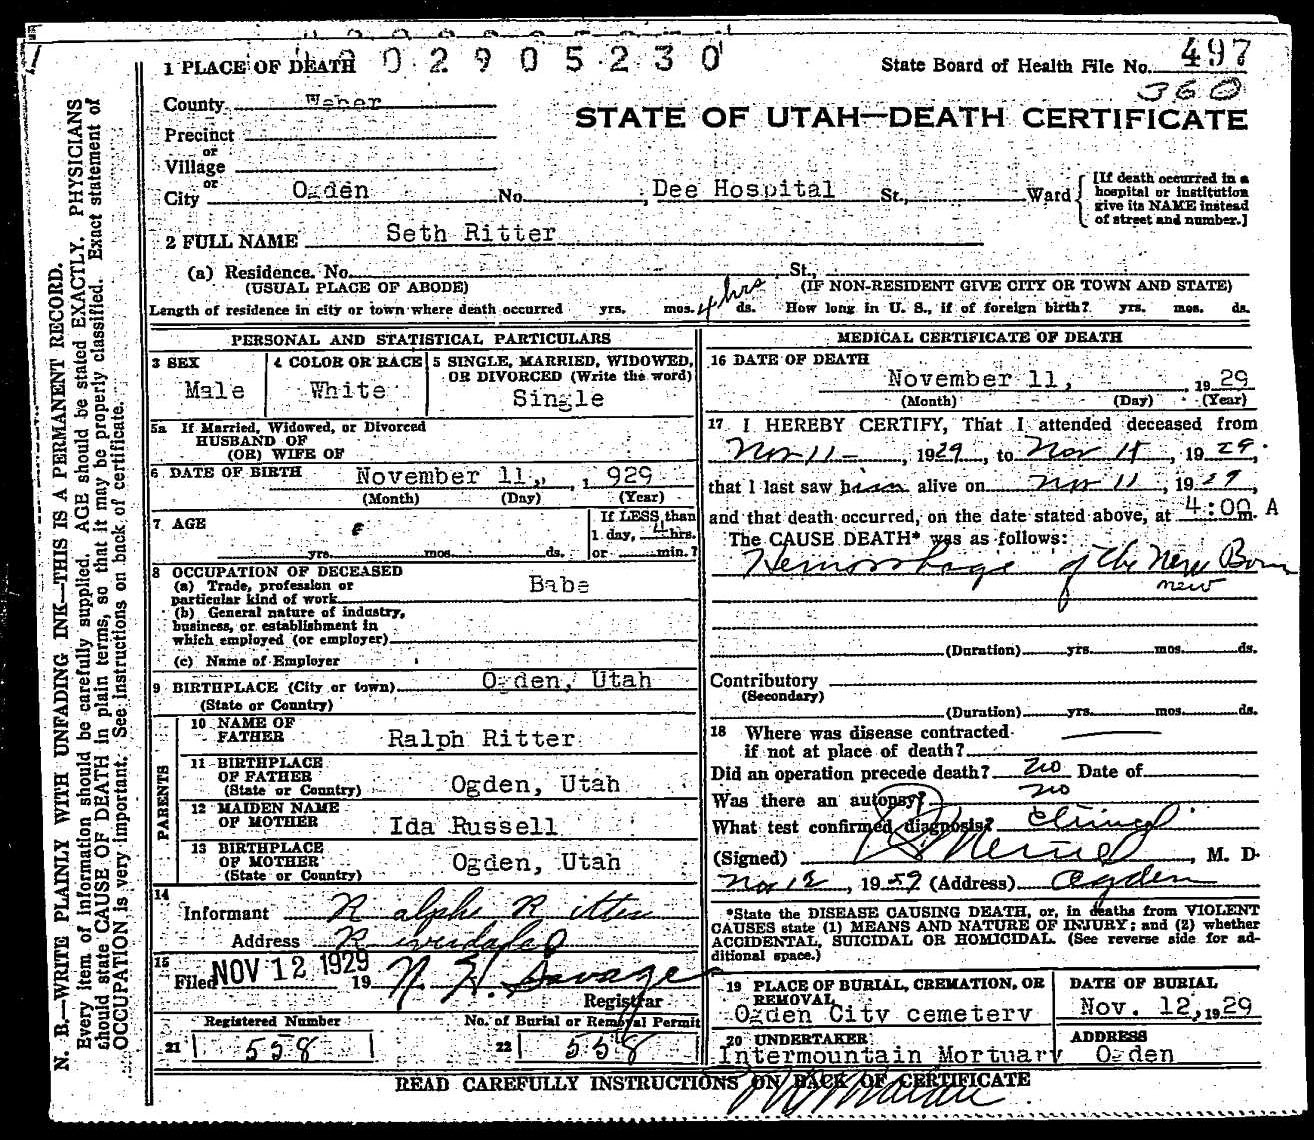 1 PLACE OF DEATH 0 2 9 0 5 2 3 0
State Board of Health File No. 497
360
County Weber
STATE OF UTAH—DEATH CERTIFICATE
Precinct
or
Village
or
City Ogden No. , Dee Hospital St., Ward
[If death occurred in a hospital or institution give its NAME instead of street and number.]
2 FULL NAME Seth Ritter
(a) Residence. No. St.,
(USUAL PLACE OF ABODE) (IF NON-RESIDENT GIVE CITY OR TOWN AND STATE)
Length of residence in city or town where death occurred yrs. mos. 4 hrs ds. How long in U. S., if of foreign birth? yrs. mos. ds.
PERSONAL AND STATISTICAL PARTICULARS
3 SEX
Male
4 COLOR OR RACE
White
5 SINGLE, MARRIED, WIDOWED,
OR DIVORCED (Write the word)
Single
5a If Married, Widowed, or Divorced
HUSBAND OF
(OR) WIFE OF
6 DATE OF BIRTH November 11, , 1929
(Month) (Day) (Year)
7 AGE
yrs. mos. ds.
If LESS than
1 day, 4 hrs.
or min.?
8 OCCUPATION OF DECEASED
(a) Trade, profession or
particular kind of work Babe
(b) General nature of industry,
business, or establishment in
which employed (or employer)
(c) Name of Employer
9 BIRTHPLACE (City or town) Ogden, Utah
(State or Country)
PARENTS
10 NAME OF
FATHER Ralph Ritter
11 BIRTHPLACE
OF FATHER
(State or Country) Ogden, Utah
12 MAIDEN NAME
OF MOTHER Ida Russell
13 BIRTHPLACE
OF MOTHER
(State or Country) Ogden, Utah
14
Informant Ralph Ritter
Address Riverdale
15
Filed NOV 12 1929 19
Registrar
Registered Number No. of Burial or Removal Permit
21 558 22 558
MEDICAL CERTIFICATE OF DEATH
16 DATE OF DEATH
November 11, , 1929
(Month) (Day) (Year)
17 I HEREBY CERTIFY, That I attended deceased from
Nov 11 , 1929, to Nov 11 , 1929,
that I last saw him alive on Nov 11 , 1929,
and that death occurred, on the date stated above, at 4:00 m. A
The CAUSE DEATH* was as follows:
Hemorrhage of the New Born
new
(Duration) yrs. mos. ds.
Contributory
(Secondary)
(Duration) yrs. mos. ds.
18 Where was disease contracted
if not at place of death?
Did an operation precede death? no Date of
Was there an autopsy? no
What test confirmed diagnosis? clinical
(Signed) , M. D.
Nov 12 , 1929 (Address) Ogden
*State the DISEASE CAUSING DEATH, or, in deaths from VIOLENT
CAUSES state (1) MEANS AND NATURE OF INJURY; and (2) whether
ACCIDENTAL, SUICIDAL OR HOMICIDAL. (See reverse side for ad-
ditional space.)
19 PLACE OF BURIAL, CREMATION, OR
REMOVAL
Ogden City cemetery
DATE OF BURIAL
Nov. 12, 1929
20 UNDERTAKER
Intermountain Mortuary
ADDRESS
Ogden
READ CAREFULLY INSTRUCTIONS ON BACK OF CERTIFICATE
N. B.—WRITE PLAINLY WITH UNFADING INK—THIS IS A PERMANENT RECORD.
Every item of information should be carefully supplied. AGE should be stated EXACTLY. PHYSICIANS
should state CAUSE OF DEATH in plain terms, so that it may be properly classified. Exact statement of
OCCUPATION is very important. See instructions on back of certificate.